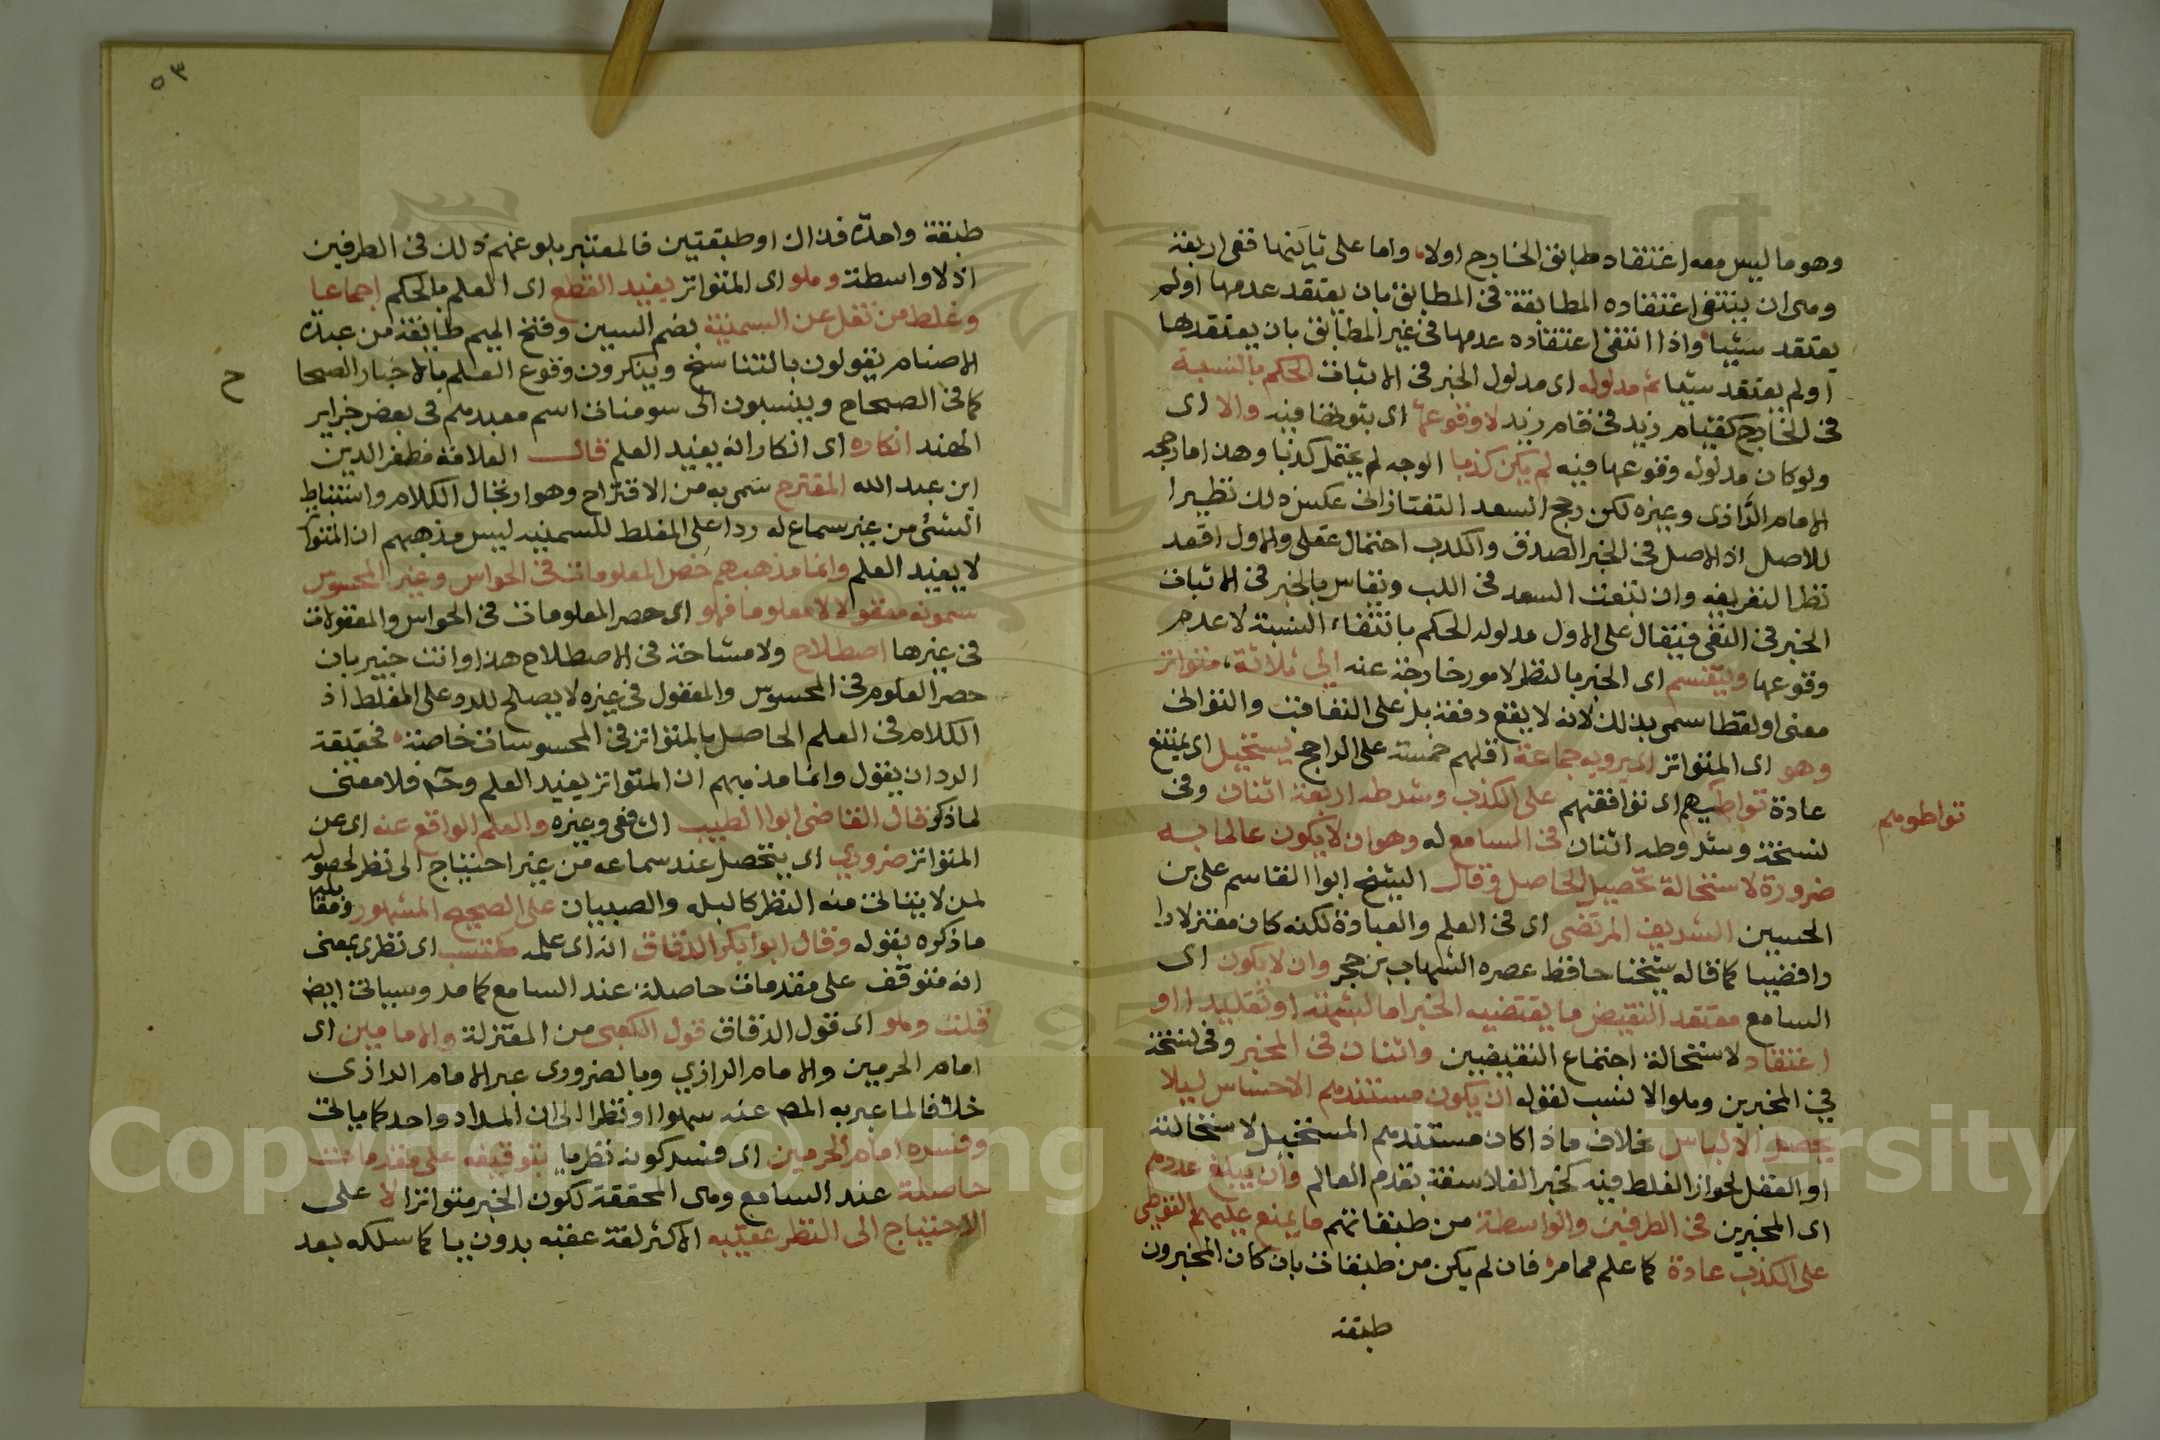 وهو ما ليس معه اعتقاد طابق الخارج اولا واما على ثانيها ففى اربعة
وهى ان ينتفى اعتقاده المطابقة فى المطابق بان يعتقد عدمها اولم
يعتقد شيئا واذا انتفى اعتقاده عدمها فى غير المطابق بان يعتقدها
اولم يعتقد شيئا ثم مدلوله اى مدلول الخبر فى الاثبات الحكم بالنسبة
فى الخارج كقيام زيد فى قام زيد لا وقوعها اى بثوتها فيه والا اى
ولو كان مدلوله وقوعها فيه لم يكن كذبا الوجه لم يحتمل كذبا وهذا ما رجحه
الامام الرازى وغيره لكن رجح السعد التفتازانى عكس ذلك نظيرا
للاصل اذ الاصل فى الخبر الصدق والكذب احتمال عقلى والاول اقعد
نظرا لتعريفه وان تبعت السعد فى اللب ويقاس بالخبر فى الاثبات
الخبر فى النفى فيقال على الاول مدلوله الحكم بانتفاء النسبة لا عدم
وقوعها وينقسم اى الخبر بالنظر لامور خارجة عنه الى ثلاثة متواتر
معنى او لفظا سمى بذلك لانه لا يقع دفعة بل على التعاقب والتوالى
وهو اى المتواتر اى يرويه جماعة اقلهم خمسة على الراجح يستحيل اى يمتنع
عادة تواطيهم اى توافقهم على الكذب وشرطه اربعة اثنان وفى
نسخة وشروطه اثنان فى السامع له وهو ان لا يكون عالما به
ضرورة لاستحالة تحصيل الحاصل وقال الشيخ ابوا القاسم على بن
الحسين الشريف المرتضى اى فى العلم والعبادة لكنه كان معتزلا
رافضيا كما قاله شيخنا حافظ عصره الشهاب بن حجر وان لا يكون اى
السامع معتقد النقيض ما يقتضيه الخبر اما لشبهته او تقليد او
اعتقاد لاستحالة اجتماع النقيضين واثنان فى المخبر وفى نسخة
فى المخبرين وهو الانسب لقوله ان يكون مستندهم الاحساس ليلا
يحصل الالباس بخلاف ما اذا كان مستندهم المستحيل لاستحالته
او العقل لجواز الغلط فيه كخبر الفلاسفة بقدم العالم وان يبلغ عددهم
اى المخبرين فى الطرفين والواسطة من طبقاتهم ما يمنع عليهم التوطى
على الكذب عادة كما علم مما مر فان لم يكن من طبقات بان كان المخبرون
طبقة
تواطوهم
٥٣
طبقة واحدة فذاك او طبقتين فالمعتبر بلوغهم ذلك فى الطرفين
اذ لا واسطة وهو اى المتواتر يفيد القطع اى العلم بالحكم اجماعا
وغلط من نقل عن السمنية بضم السين وفتح الميم طايفة من عبدة
الاصنام يقولون بالتناسخ وينكرون وقوع العلم بالاخبار الصحا
ح
كما فى الصحاح وينسبون الى سومنات اسم معبدهم فى بعض جزاير
الهند انكاره اى انكار انه يفيد العلم قال العلامة مظفر الدين
ابن عبد الله المقترح سمى به من الاقتراح وهو ارتجال الكلام واستنباط
الشئ من غير سماع له ردا على المغلط للسمنيه ليس مذهبهم ان المتواتر
لا يفيد العلم وانما مذهبهم حصر المعلومات فى الحواس وغير المحسوس
سمونه معقولا لا معلوما فهو اى حصر المعلومات فى الحواس والمعقولات
فى غيرها اصطلاح ولا مشاحة فى الاصطلاح هذا وانت خبير بان
حصر العلوم فى المحسوس والمعقول فى غيره لا يصلح للرد على المغلط اذ
الكلام فى العلم الحاصل بالمتواتر فى المحسوسات خاصة فحقيقة
الرد ان يقول وانما مذهبهم ان المتواتر يفيد العلم وحم فلا معنى
لما ذكر قال القاضى ابوا الطيب الشافعى وغيره والعلم الواقع عنه اى عن
المتواتر ضرورى اى يتحصل عند سماعه من غير احتياج الى نظر لحصوله
لمن لا يتاتى منه النظر كالبله والصبيان على الصحيح المشهور ومقابله
ما ذكره بقوله وقال ابوا بكر الدقاق انه اى علمه مكتسب اى نظرى بمعنى
انه متوقف على مقدمات حاصلة عند السامع كما مر وسياتى ايضا
قلت وهو اى قول الدقاق قول الكعبى من المعتزلة والامامين اى
امام الحرمين والامام الرازى وبالضرورى عبر الامام الرازى
خلافا لما عبر به المصر عنه سهوا او نظرا الى ان المراد واحد كما ياتى
وفسره امام الحرمين اى فسر كونه نظريا بتوقيفه على مقدمات
حاصلة عند السامع وهى المحققة لكون الخبر متواترا لا على
الاحتياج الى النظر عقيبه الاكثر لغة عقبه بدون يا كما سلكه بعد